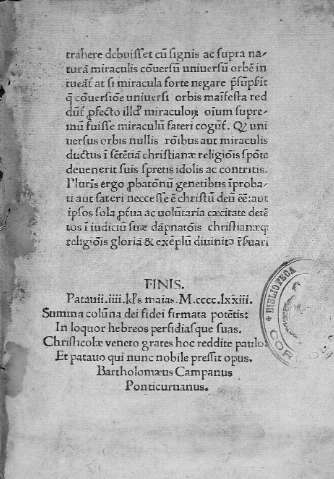 trahere debuisset cũ signis ac supra na-
turã miraculis cõuersũ uniuersũ orbẽ in
tueãt at si miracula forte negare p̃sũpserit
q̃ cõuersiõe uniuersi orbis maĩfesta red
ducti miraculũ fateri cogũt. Q uni
uersus orbis nullis rõibus aut miraculis
ductus ĩ sẽtẽtiã christianæ religiõis spõte
deuenerit suis spretis idolis ac contritis.
ergo gentibus
aut fateri necesse ẽ christũ deũ eẽ: aut
ipsos sola ac uolũtaria cæcitate detẽtos
ĩ iudiciũ suæ dãpnatõis christianæq
religiõis gloriã & exẽplũ diuinitᵒ
FINIS.
Patauii.iiii.kl's maias.M.cccc.lxxiii.
Summa colũna dei fidei firmata potẽtis:
In loquor hebreos perfidiasque suas.
Christicolæ veneto grates hoc reddite paulo:
Et patauo qui nunc nobile pressit opus.
Bartholomæus Campanus
Ponticuruanus.
BIBLIOTECA